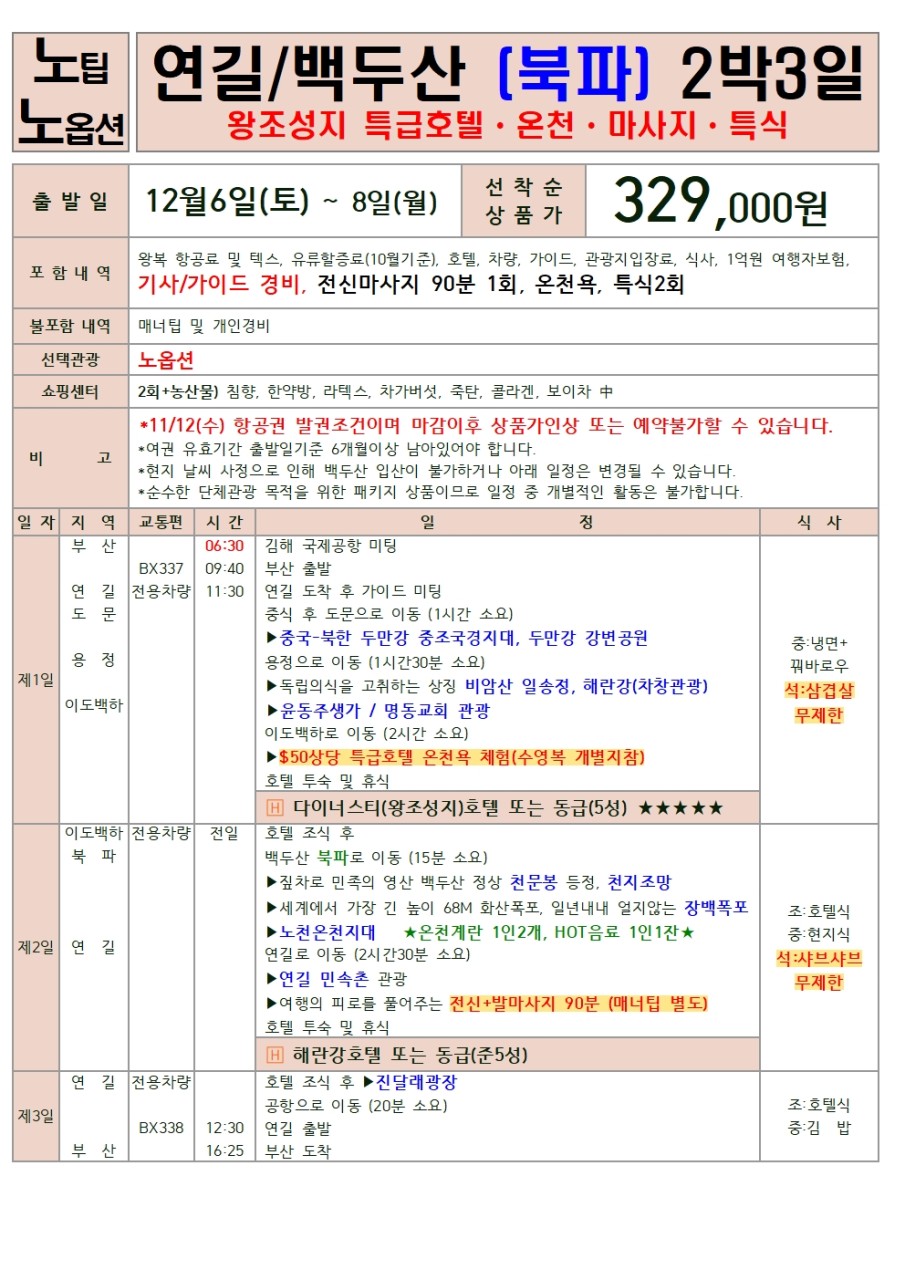 노팁
노옵션
연길/백두산 (북파) 2박3일
왕조성지 특급호텔·온천·마사지·특식
출 발 일
12월6일(토) ~ 8일(월)
선 착 순
상 품 가
329,000원
포 함 내 역
왕복 항공료 및 텍스, 유류할증료(10월기준), 호텔, 차량, 가이드, 관광지입장료, 식사, 1억원 여행자보험,
기사/가이드 경비, 전신마사지 90분 1회, 온천욕, 특식2회
불포함 내역
매너팁 및 개인경비
선택관광
노옵션
쇼핑센터
2회+농산물) 침향, 한약방, 라텍스, 차가버섯, 죽탄, 콜라겐, 보이차 中
비 고
*11/12(수) 항공권 발권조건이며 마감이후 상품가인상 또는 예약불가할 수 있습니다.
*여권 유효기간 출발일기준 6개월이상 남아있어야 합니다.
*현지 날씨 사정으로 인해 백두산 입산이 불가하거나 아래 일정은 변경될 수 있습니다.
*순수한 단체관광 목적을 위한 패키지 상품이므로 일정 중 개별적인 활동은 불가합니다.
일 자 지 역 교통편 시 간 일 정 식 사
제1일
부 산 06:30 김해 국제공항 미팅
BX337 09:40 부산 출발
연 길 전용차량 11:30 연길 도착 후 가이드 미팅
도 문 중식 후 도문으로 이동 (1시간 소요)
▶중국-북한 두만강 중조국경지대, 두만강 강변공원
용 정 용정으로 이동 (1시간30분 소요)
▶독립의식을 고취하는 상징 비암산 일송정, 해란강(차창관광)
▶윤동주생가 / 명동교회 관광
이도백하 이도백하로 이동 (2시간 소요)
▶$50상당 특급호텔 온천욕 체험(수영복 개별지참)
호텔 투숙 및 휴식
H 다이너스티(왕조성지)호텔 또는 동급(5성) ★★★★★
중:냉면+
꿔바로우
석:삼겹살
무제한
제2일
이도백하 전용차량 전일 호텔 조식 후
북 파 백두산 북파로 이동 (15분 소요)
▶짚차로 민족의 영산 백두산 정상 천문봉 등정, 천지조망
▶세계에서 가장 긴 높이 68M 화산폭포, 일년내내 얼지않는 장백폭포
▶노천온천지대 ★온천계란 1인2개, HOT음료 1인1잔★
연 길 연길로 이동 (2시간30분 소요)
▶연길 민속촌 관광
▶여행의 피로를 풀어주는 전신+발마사지 90분 (매너팁 별도)
호텔 투숙 및 휴식
H 해란강호텔 또는 동급(준5성)
조:호텔식
중:현지식
석:샤브샤브
무제한
제3일
연 길 전용차량 호텔 조식 후 ▶진달래광장
공항으로 이동 (20분 소요)
BX338 12:30 연길 출발
부 산 16:25 부산 도착
조:호텔식
중:김 밥